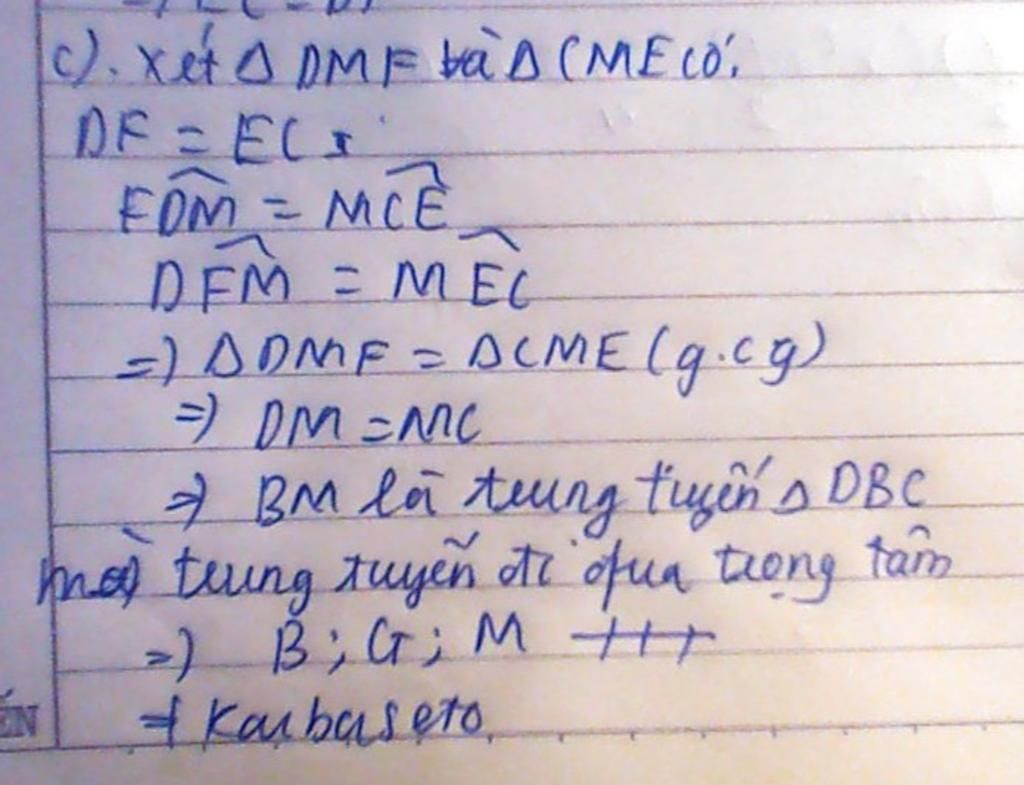 c). xét Δ DMF và Δ CME có:
DF = EC
FDM = MCE
DFM = MEC
=) ΔDMF = ΔCME (g.c g)
=) DM = MC
=) BM là trung tuyến Δ DBC
mà trung tuyến đi qua trọng tâm
=) B; G; M